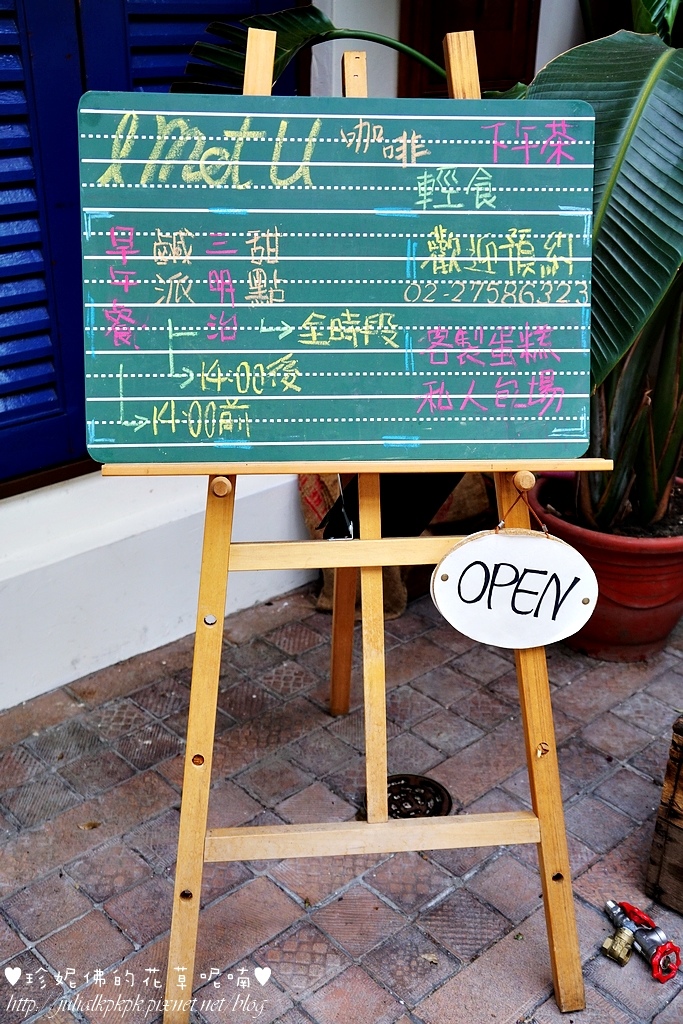 I Met U 咖啡 下午茶
輕食
早午餐
鹹派
三明治
甜點
全時段
14:00後
14:00前
歡迎預約
02-27586323
客製蛋糕
私人包場
OPEN
♥珍妮佛的花草呢喃♥
http://julialkpkpk.pixnet.net/blog